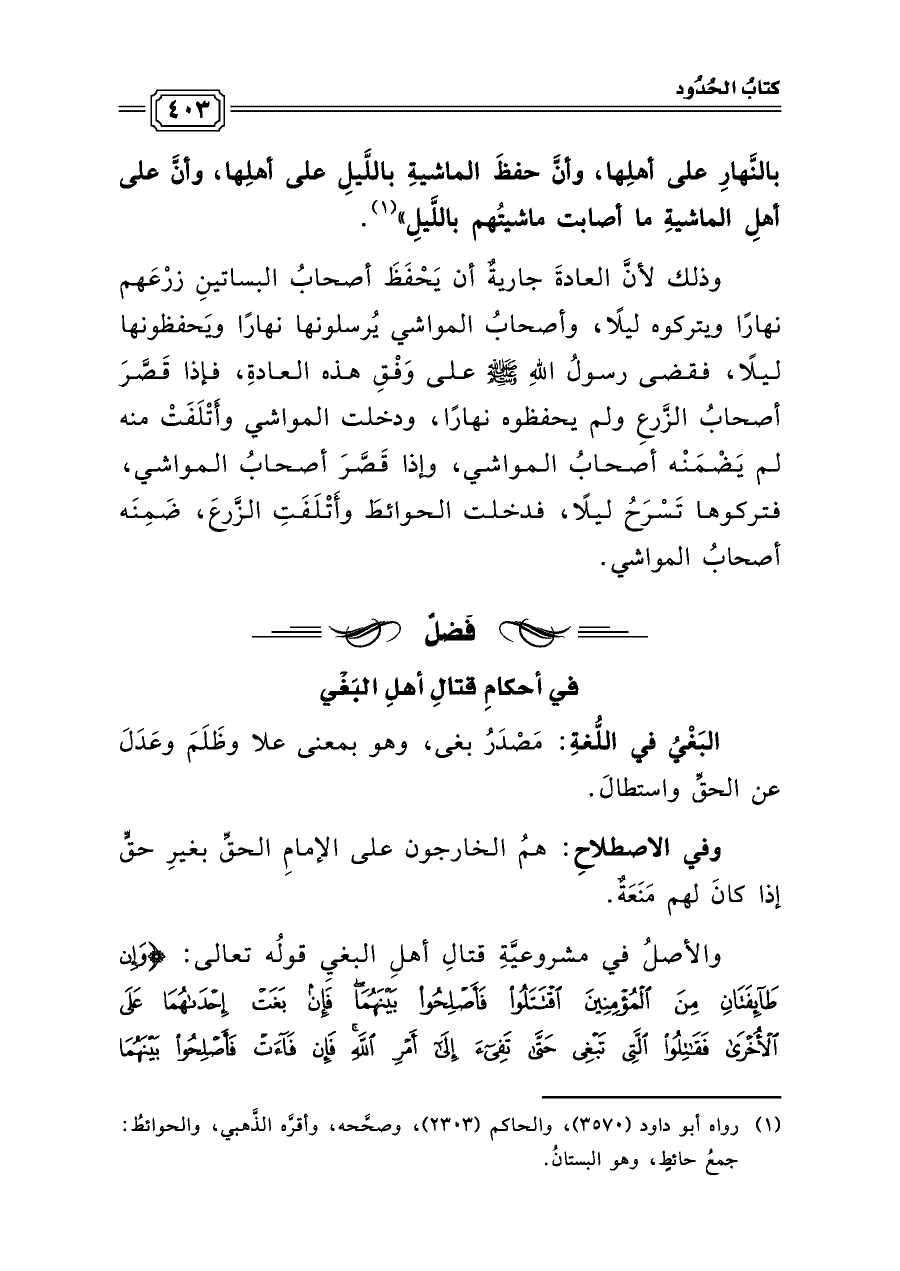 كتابُ الحُدُود
٤٠٣
بالنَّهارِ على أهلِها، وأنَّ حفظَ الماشيةِ باللَّيلِ على أهلِها، وأنَّ على
أهلِ الماشيةِ ما أصابت ماشيتُهم باللَّيلِ»(١).
وذلك لأنَّ العادةَ جاريةٌ أن يَحْفَظَ أصحابُ البساتينِ زرْعَهم
نهارًا ويتركوه ليلًا، وأصحابُ المواشي يُرسلونها نهارًا ويَحفظونها
ليلًا، فقضى رسولُ اللهِ ﷺ على وَفْقِ هذه العادةِ، فإذا قَصَّرَ
أصحابُ الزَّرعِ ولم يحفظوه نهارًا، ودخلت المواشي وأَتْلَفَتْ منه
لم يَضْمَنْه أصحابُ المواشي، وإذا قَصَّرَ أصحابُ المواشي،
فتركوها تَسْرَحُ ليلًا، فدخلت الحوائطَ وأَتْلَفَتِ الزَّرعَ، ضَمِنَه
أصحابُ المواشي.
فَصلٌ
في أحكامِ قتالِ أهلِ البَغْي
البَغْيُ في اللُّغةِ: مَصْدَرُ بغى، وهو بمعنى علا وظَلَمَ وعَدَلَ
عن الحقِّ واستطالَ.
وفي الاصطلاحِ: همُ الخارجون على الإمامِ الحقِّ بغيرِ حقٍّ
إذا كانَ لهم مَنَعَةٌ.
والأصلُ في مشروعيَّةِ قتالِ أهلِ البغيِ قولُه تعالى: ﴿وَإِن
طَآئِفَتَانِ مِنَ ٱلْمُؤْمِنِينَ ٱقْتَتَلُوا۟ فَأَصْلِحُوا۟ بَيْنَهُمَا ۖ فَإِنۢ بَغَتْ إِحْدَىٰهُمَا عَلَى
ٱلْأُخْرَىٰ فَقَٰتِلُوا۟ ٱلَّتِى تَبْغِى حَتَّىٰ تَفِىٓءَ إِلَىٰٓ أَمْرِ ٱللَّهِ ۚ فَإِن فَآءَتْ فَأَصْلِحُوا۟ بَيْنَهُمَا
(١) رواه أبو داود (٣٥٧٠)، والحاكم (٢٣٠٣)، وصحَّحه، وأقرَّه الذَّهبي، والحوائطُ:
جمعُ حائطٍ، وهو البستانُ.